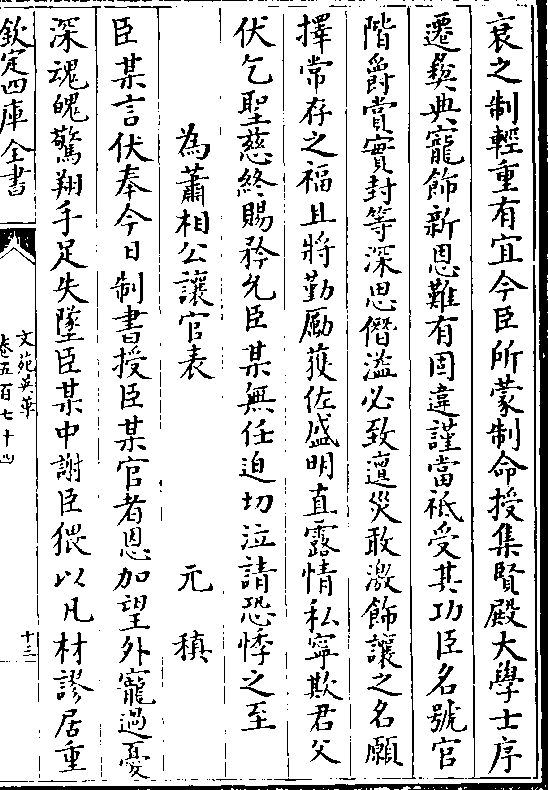 衰之制輕重有宜今臣所蒙制命授集賢殿大學士序
遷彜典寵飾新恩難有固違謹當祗受其功臣名號官
階爵賞實封等深思僭溢必致亶災敢激飾讓之名願
擇常存之福且將勤勵獲佐盛明直露情私寧欺君父
伏乞聖慈終賜矜允臣某無任迫切泣請恐悸之至
為蕭相公讓官表 元稹
臣某言伏奉今日制書授臣某官者恩加望外寵過憂
深魂魄驚翔手足失墜臣某中謝臣猥以凡材謬居重
欽定四庫全書
文苑英華
卷五百七十四
十三